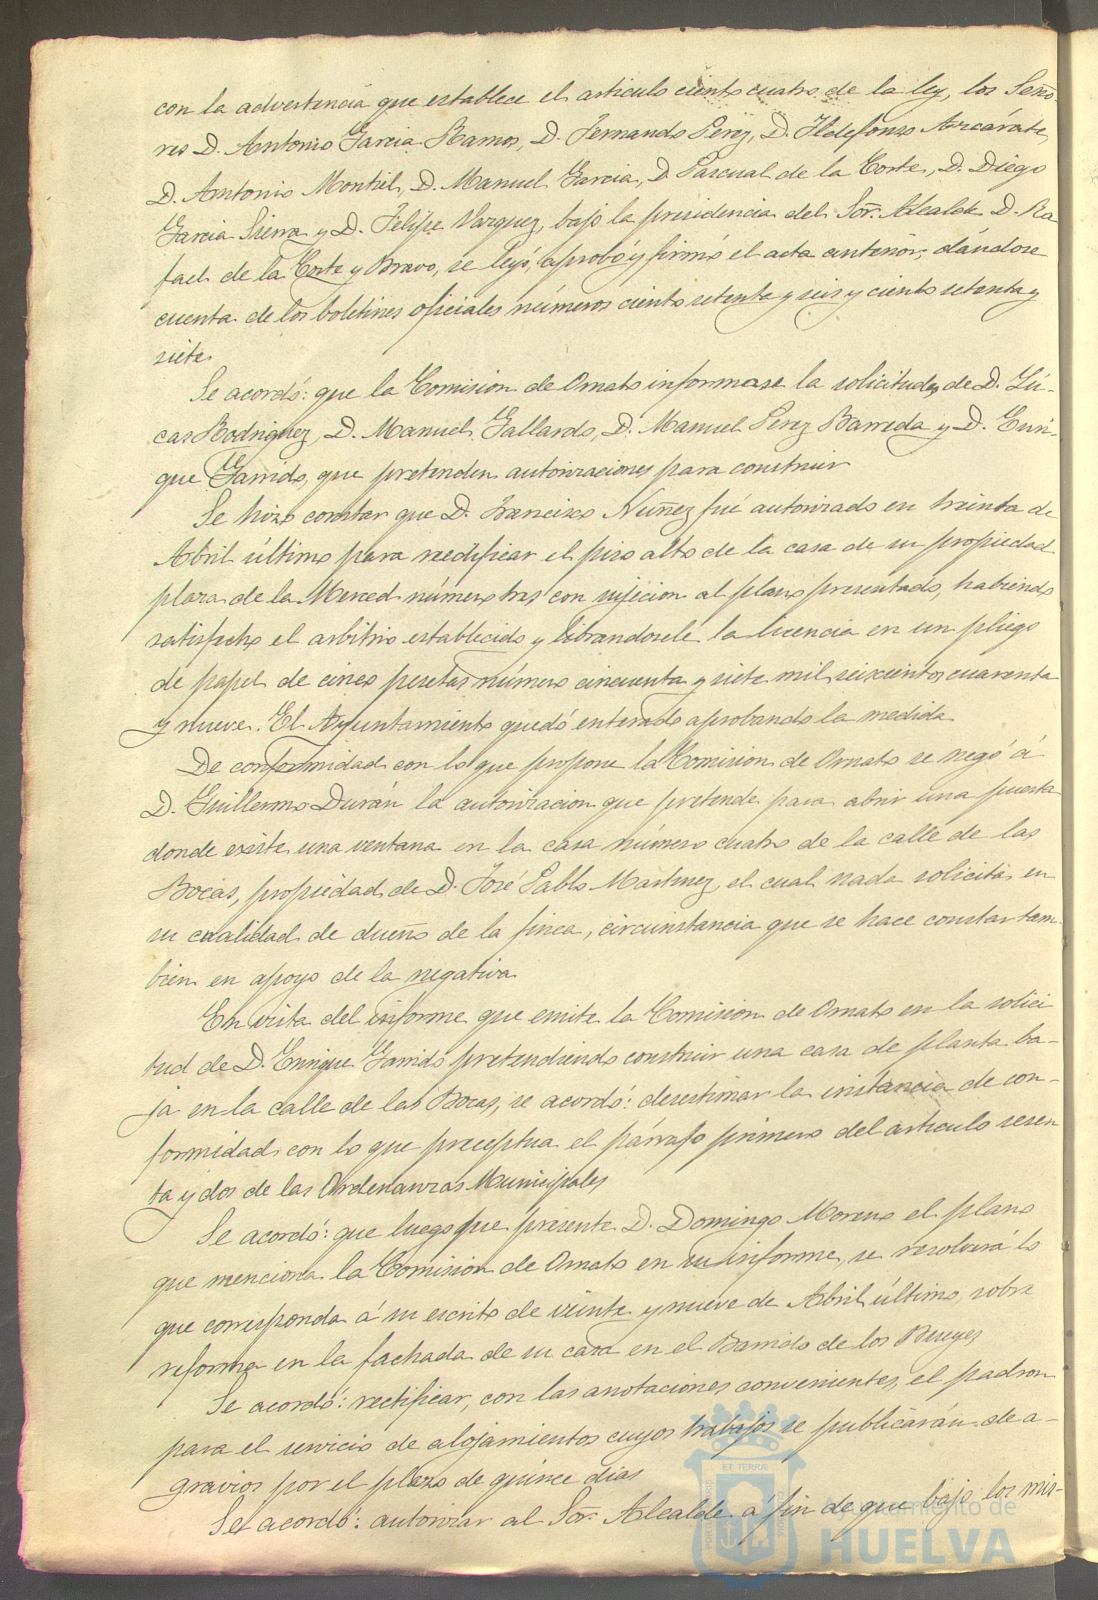 con la advertencia que establece el articulo ciento cuatro de la ley, los Seño-
res D. Antonio Garcia Ramos, D. Fernando Perez, D. Ildefonso Azcárate,
D. Antonio Montiel, D. Manuel Garcia, D. Pascual de la Corte, D. Diego
Garcia Sierra y D. Felipe Vazquez, bajo la presidencia del Sor. Alcalde D. Ra
fael de la Corte y Bravo, se leyó, aprobó y firmó el acta anterior, dándose
cuenta de los boletines oficiales números ciento setenta y seis y ciento setenta y
siete.
Se acordó: que la Comision de Ornato informase la solicitudes de D. Lú-
cas Rodriguez, D. Manuel Gallardo, D. Manuel Perez Barreda y D. Enri-
que Garrido, que pretenden autorizaciones para construir
Se hizo constar que D. Francisco Nuñez fué autorizado en treinta de
Abril último para reedificar el piso alto de la casa de su propiedad
plaza de la Merced número tres con sujecion al plano presentado, habiendo
satisfecho el arbitrio establecido y librandosele la licencia en un pliego
de papel de cinco pesetas número cincuenta y siete mil seiscientos cuarenta
y nueve. El Ayuntamiento quedó enterado aprobando la medida
De conformidad con lo que propone la Comision de Ornato se negó á
D. Guillermo Durán la autorizacion que pretende para abrir una puerta
donde existe una ventana en la casa número cuatro de la calle de las
Bocas, propiedad de D. José Pablo Martinez, el cual nada solicita en
su cualidad de dueño de la finca, circunstancia que se hace constar tam-
bien en apoyo de la negativa
En vista del informe que emite la Comision de Ornato en la solici
tud de D. Enrique Garrido pretendiendo construir una casa de planta ba-
ja en la calle de las Bocas, se acordó: desestimar la instancia de con-
formidad con lo que preceptua el párrafo primero del articulo sesen
ta y dos de las Ordenanzas Municipales
Se acordó: que luego que presente D. Domingo Moreno el plano
que menciona la Comision de Ornato en su informe, se resolverá lo
que corresponda á su escrito de veinte y nueve de Abril último, sobre
reforma en la fachada de su casa en el Barrido de los Reyes
Se acordó: rectificar, con las anotaciones convenientes, el padron
para el servicio de alojamientos cuyos trabajos se publicarán de a-
gravios por el plazo de quince dias
Se acordó: autorizar al Sor. Alcalde á fin de que bajo los mis-
Ayuntamiento de
HUELVA